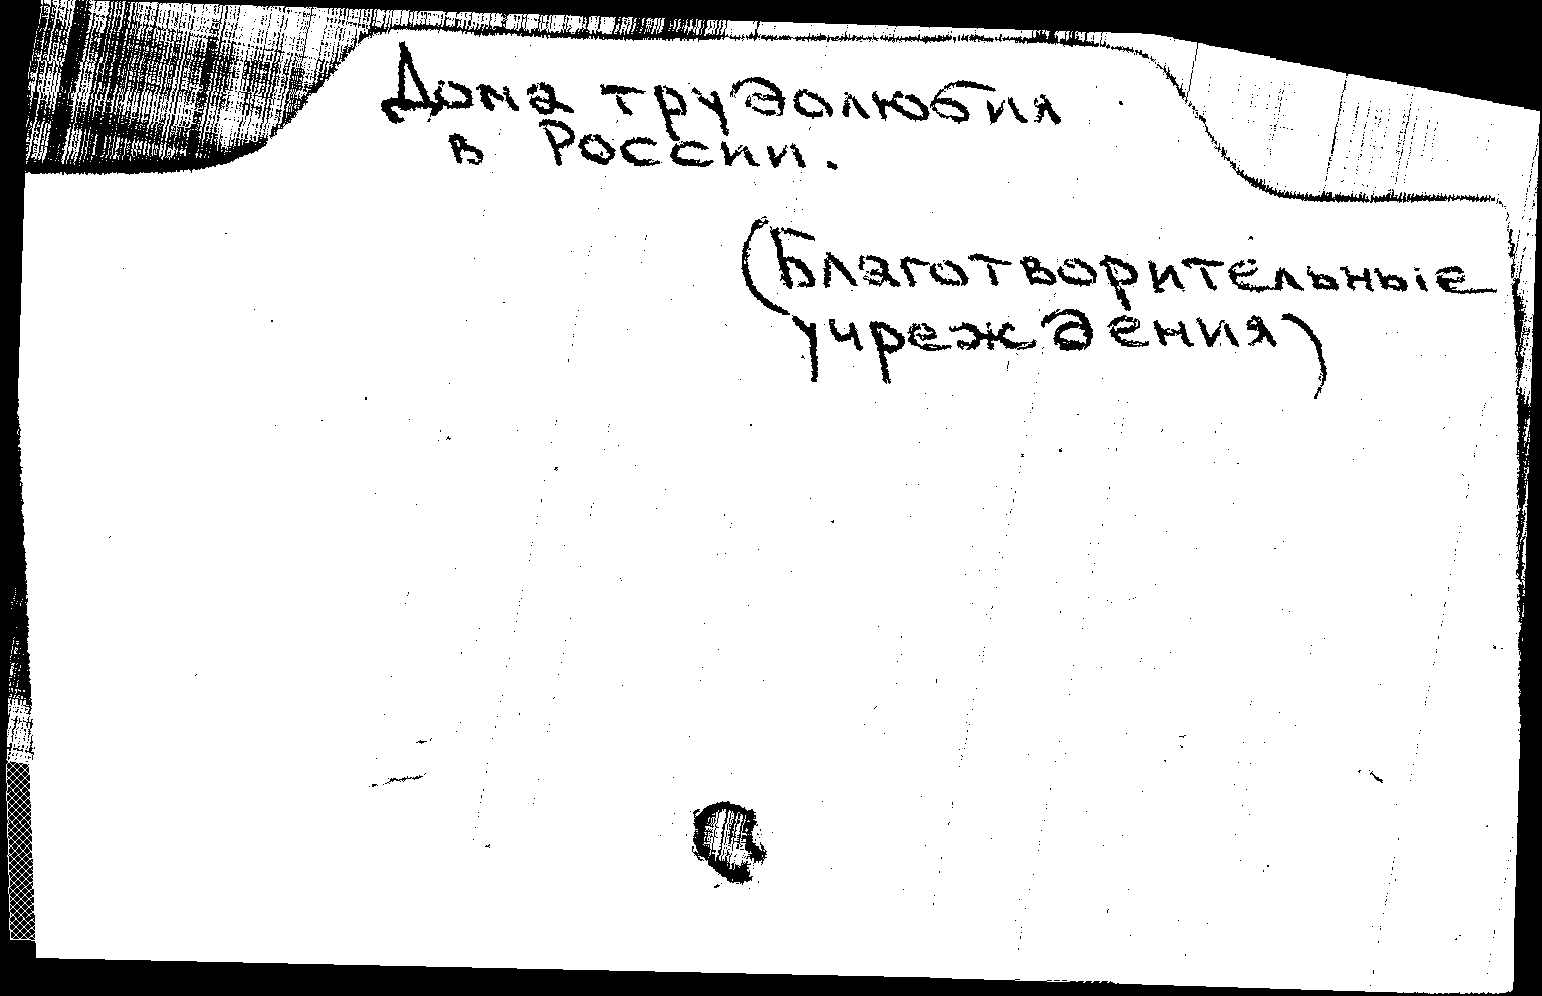 Дома трудолюбия
в России.
(Благотворительные
учреждения)